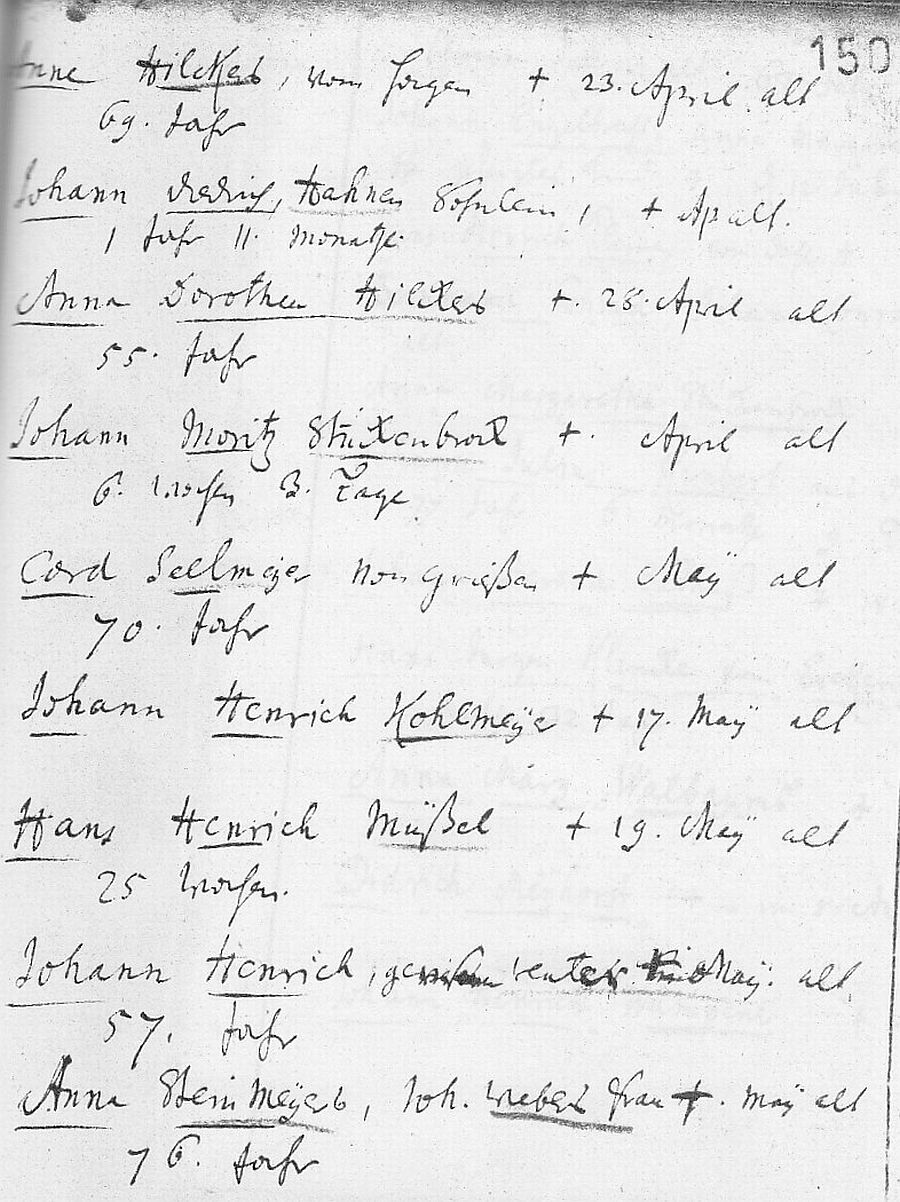 150
Anne Hilckers, vom Horgen + 23. April alt
69. Jahr
Johann diedrich, Hahnen Söhnlein, + Ap alt.
1 Jahr 11. Monathe.
Anna Dorothea Hilckers +. 28. April alt
55. Jahr
Johann Moritz Stückenbrock +. April alt
6. Wochen 3. Tage
Cord Seelmejer von + Maÿ alt
70. Jahr
Johann Henrich Kohlmeÿer + 17. Maÿ alt
Hans Henrich Müßel + 19. Maÿ alt
25 Wochen.
Johann Henrich, Maÿ. alt
57. Jahr
Anna Steinmeÿers, Joh. webers frau +. Maÿ alt
76. Jahr